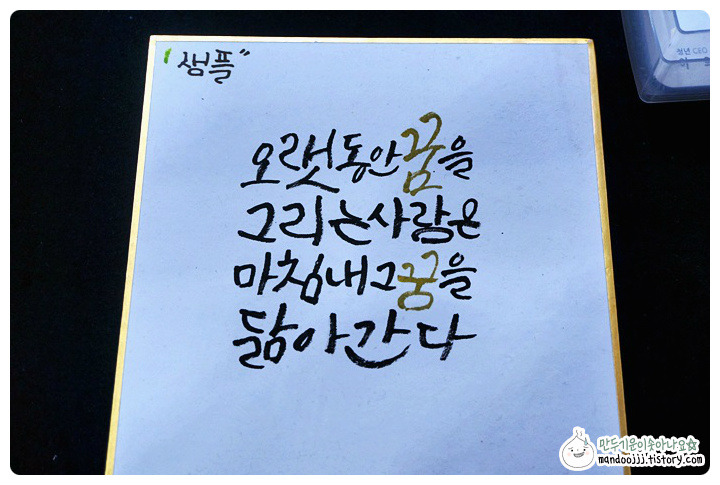 "샘플"
청년 CEO
오랫동안 꿈을
그리는 사람은
마침내 그 꿈을
닮아간다
만두기운이솟아나요☆
mandoojjj.tistory.com